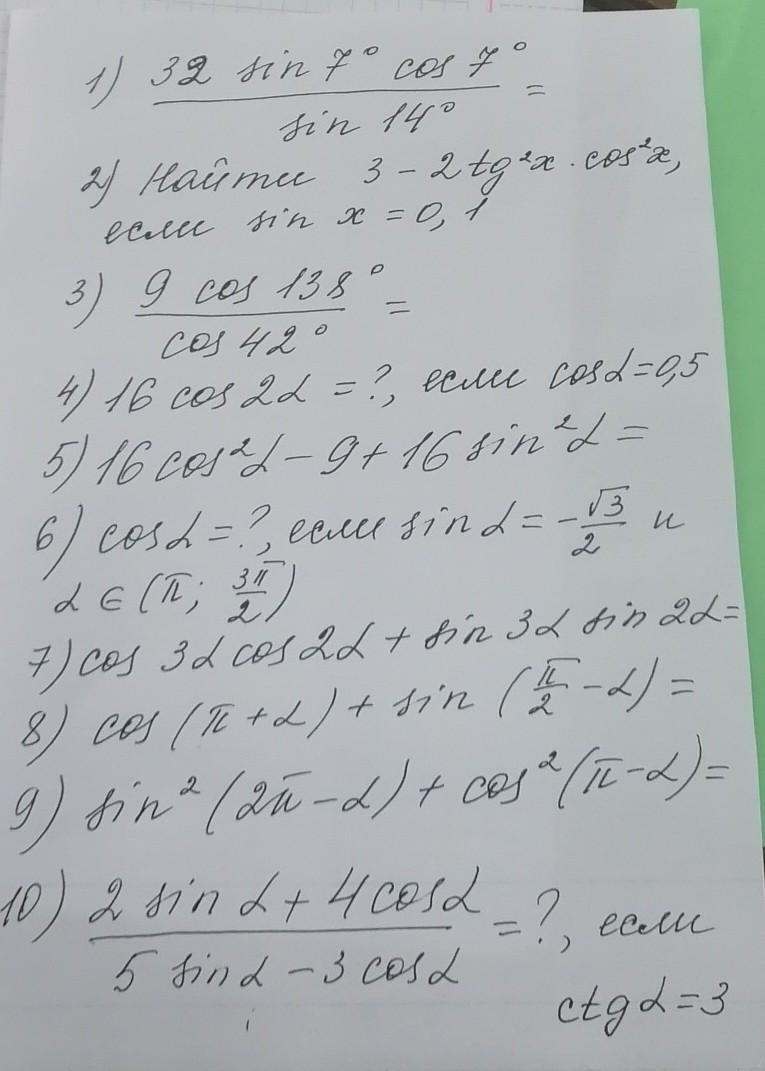 1) 32 sin 7° cos 7° / sin 14° =
2) Найти 3 - 2 tg²x · cos²x,
если sin x = 0,1
3) 9 cos 138° / cos 42° =
4) 16 cos 2α = ?, если cos α = 0,5
5) 16 cos²α - 9 + 16 sin²α =
6) cos α = ?, если sin α = -√3/2 и
α ∈ (π; 3π/2)
7) cos 3α cos 2α + sin 3α sin 2α =
8) cos (π + α) + sin (π/2 - α) =
9) sin² (2π - α) + cos² (π - α) =
10) 2 sin α + 4 cos α / 5 sin α - 3 cos α = ?, если
ctg α = 3